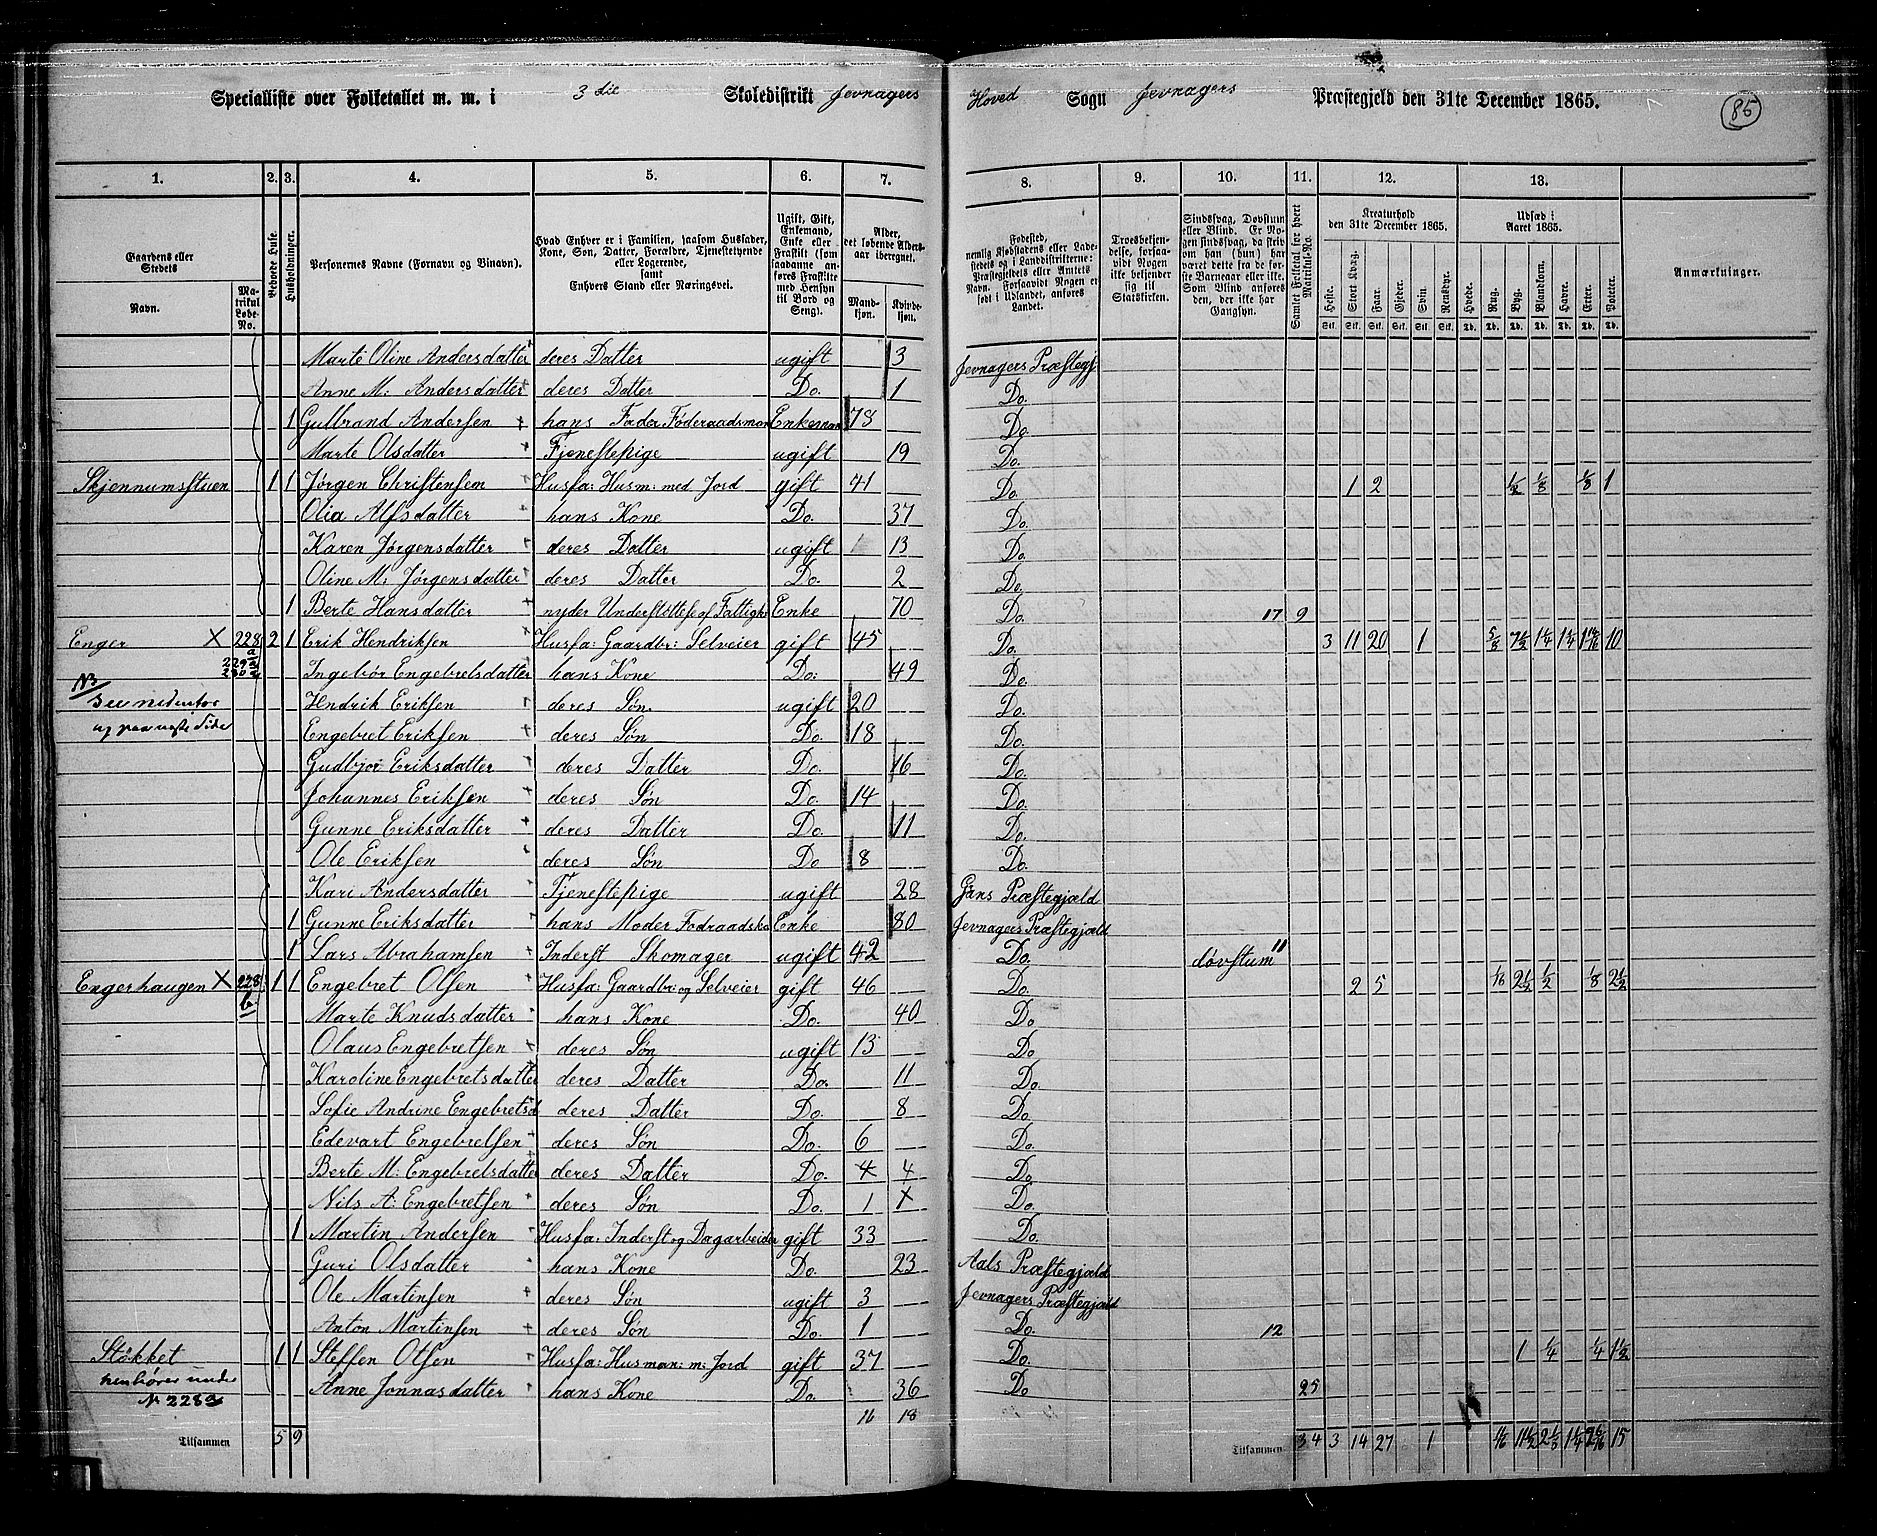 Specialliste over Folketallet m. m. i 3die Skoledistrikt Jevnagers Hoved Sogn Jevnagers Præstegjeld den 31te December 1865.
85
1. 2. 3. 4. 5. 6. 7. 8. 9. 10. 11. 12. 13.
Gaardens eller Stedets Navn.
Matrikul Løbe-No.
Beboede Huse.
Husholdninger.
Personernes Navne (Fornavn og Tilnavn).
Hvad Enhver er i Familien, saasom Husfader, Kone, Søn, Datter, Forældre, Tjenestetyende eller Logerende, samt Enhvers Stand eller Næringsvei.
Ugift, Gift, Enkemand, Enke eller Fraskilt (som saadanne anføres Fraskilte med Hensyn til Bord og Seng).
Alder, det løbende Aldersaar iberegnet.
Mandkjøn. Kvindekjøn.
Fødested, nemlig Kjøbstadens eller Ladestedets og i Landdistrikterne: Præstegjeldets eller Amtets Navn. Forsaavidt Nogen er født i Udlandet, anføres Landet.
Troesbekjendelse, forsaavidt Nogen ikke bekjender sig til Statskirken.
Sindssvag, Døvstum eller Blind. Er Nogen sindssvag, da skriv om han (hun) har været dette fra de første Barneaar eller ikke. Som Blind anføres den, der ikke har Gangsyn.
Samlet Folketal for hvert Matrikul-No.
Kreaturhold den 31te December 1865.
Heste. Stort Kvæg. Faar. Gjeder. Svin. Rensdyr.
Udsæd i Aaret 1865.
Hvede. Rug. Byg. Blandkorn. Havre. Erter. Poteter.
Anmærkninger.
Marte Oline Andersdatter deres Datter ugift 3 Jevnagers Præstegj
Anne M: Andersdatter deres Datter Do. 1 Do.
1 Gulbrand Andersen hans Fader Føderaadsman Enkeman 78 Do.
Marte Olsdatter Tjenestepige ugift 19 Do.
Skjennumsstuen 1 1 Jørgen Christensen Husfa: Husm: med Jord gift 41 Do. 1 2 1/2 1/8 1/8 1
Olia Alfsdatter hans Kone Do. 37 Do.
Karen Jørgensdatter deres Datter ugift 13 Do.
Oline M: Jørgensdatter deres Datter Do. 2 Do.
1 Berte Hansdatter nyder Understøttese af Fattigk Enke 70 Do. 17 9
Enger X 228 a 2 1 Erik Hendriksen Husfa: Gaardbr: Selveier gift 45 Do. 3 11 20 1 5/8 7 1/2 1 1/4 1 1/4 10
Ingebor Engebretsdatter hans Kone Do: 49 Do.
NB Hendrik Eriksen deres Søn ugift 20 Do.
Engebret Eriksen deres Søn Do. 18 Do.
Gudbjor Eriksdatter deres Datter Do. 16 Do.
Johannes Eriksen deres Søn Do. 14 Do.
Gunne Eriksdatter deres Datter Do. 11 Do.
Ole Eriksen deres Søn Do 8 Do.
Kari Andersdatter Tjenestepige ugift 28 Grans Præstegjæld
1 Gunne Eriksdatter hans Moder Fodraadsko Enke 80 Jevnagers Præstegjæld
1 Lars Abrahamsen Inderst Skomager ugift 42 Do. døvstum 11
Engerhaugen X 228 b 1 1 Engebret Olsen Husfa: Gaardbr: og Selveier gift 46 Do. 2 5 1/16 2 1/2 1/2 1/8 2 1/2
Marte Knudsdatter hans Kone Do. 40 Do
Olaus Engebretsen deres Søn ugift 13 Do
Karoline Engebretsdatter deres Datter Do. 11 Do.
Sofie Andrine Engebretsd deres Datter Do. 8 Do.
Edevart Engebretsen deres Søn Do. 6 Do.
Berte M: Engebretsdatter deres Datter Do. 4 4 Do
Nils A: Engebretsen deres Søn Do. 1 Do.
1 Martin Andersen Husfa: Inderst og Dagarbeider gift 33 Do.
Guri Olsdatter hans Kone Do. 23 Aals Præstegjæld
Ole Martinsen deres Søn ugift 3 Jevnagers Præstegjæld
Anton Martinsen deres Søn Do. 1 Do. 12
Støkket 1 1 Steffen Olsen Husfa: Husman: m: Jord gift 37 Do. 1 1/4 1/4 1 1/2
henhører under Anne Jonnasdatter hans Kone Do. 36 Do 25
No 228a 16 18
Tilsammen 5 9 Tilsammen 34 3 14 27 1 15